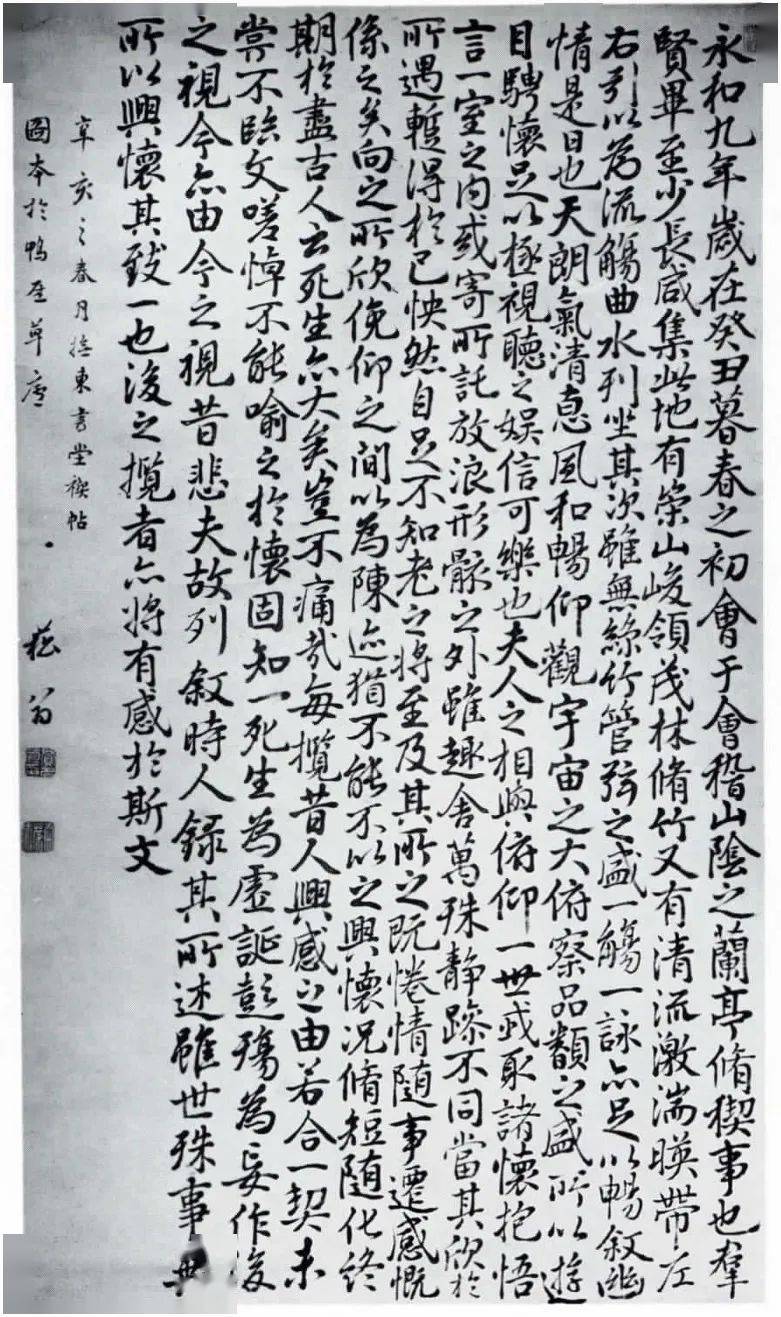 永和九年歲在癸丑暮春之初會于會稽山陰之蘭亭脩稧事也羣
賢畢至少長咸集此地有崇山峻領茂林脩竹又有清流激湍暎帶左
右引以為流觴曲水列坐其次雖無絲竹管弦之盛一觴一詠亦足以暢敘幽
情是日也天朗氣清惠風和暢仰觀宇宙之大俯察品類之盛所以遊
目騁懷足以極視聽之娛信可樂也夫人之相與俯仰一世或取諸懷抱悟
言一室之內或寄所託放浪形骸之外雖趣舍萬殊靜躁不同當其欣於
所遇蹔得於己怏然自足不知老之將至及其所之既惓情隨事遷感慨
係之矣向之所欣俛仰之間以為陳迹猶不能不以之興懷況脩短隨化終
期於盡古人云死生亦大矣豈不痛哉每攬昔人興感之由若合一契未
甞不臨文嗟悼不能喻之於懷固知一死生為虛誕彭殤為妄作後
之視今亦由今之視昔悲夫故列敘時人錄其所述雖世殊事
所以興懷其致一也後之攬者亦將有感於斯文
辛亥之春月東書堂稧帖
本於鴨草廬
翁